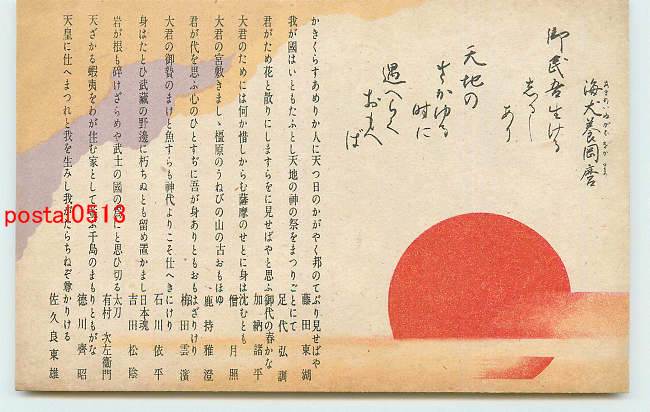 海犬養岡麿
あまのいぬかひをかまろ
御民吾生ける
しるしあり
天地の
さかゆる
時に
遇へらく
おもへ
ば
かきくらすあめりか人に天つ日のかがやく邦のてぶり見せばや 藤田東湖
我が國はいともたふとし天地の神の祭をまつりごとにて 足代弘訓
君がため花と散りにしますらをに見せばやと思ふ御代の春かな 加納諸平
大君のためには何か惜しからむ薩摩のせとに身は沈むとも 僧月照
大君の宮敷きましゝ橿原のうねびの山の古おもほゆ 鹿持雅澄
君が代を思ふ心のひとすぢに吾が身ありともおもはざりけり 梅田雲濱
大君の御贄のまけと魚すらも神代よりこそ仕へきにけり 石川依平
身はたとひ武藏の野邊に朽ちぬとも留め置かまし日本魂 吉田松陰
岩が根も碎けざらめや武士の國の爲にと思ひ切る太刀 有村次左衛門
天ざかる蝦夷をわが住む家として並ぶ千島のまもりともがな 德川齊昭
天皇に仕へまつれと我を生みし我がたらちねぞ尊かりける 佐久良東雄
postal0513